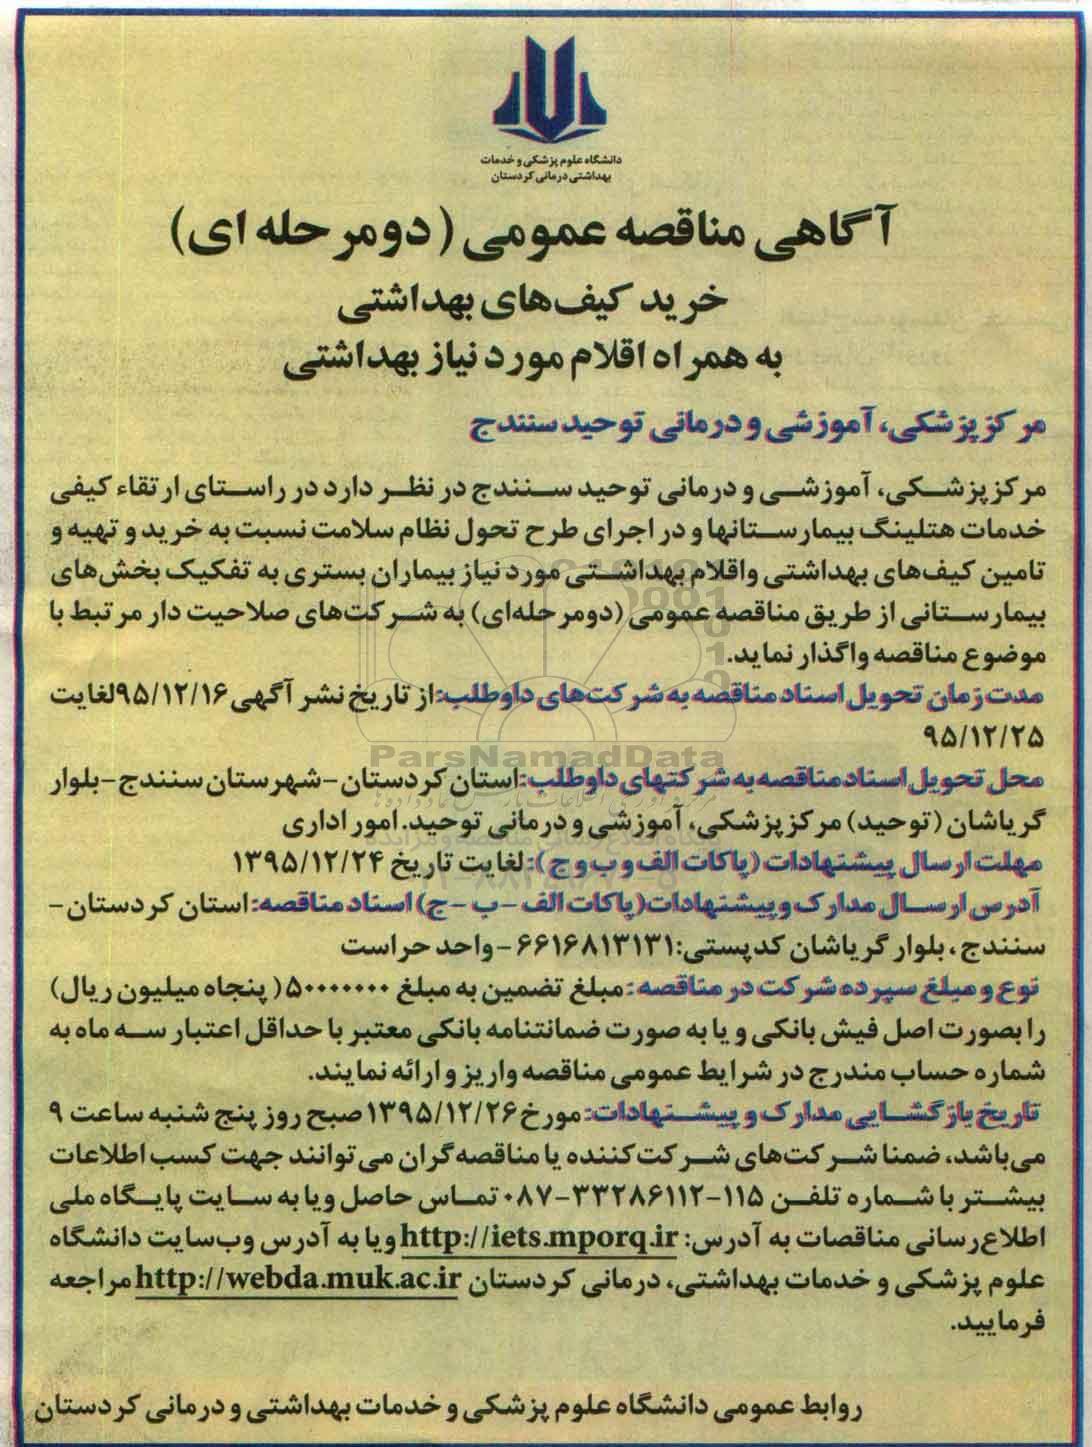 دانشگاه علوم پزشکی و خدمات
بهداشتی درمانی کردستان
آگاهی مناقصه عمومی (دومرحله ای)
خرید کیف‌های بهداشتی
به همراه اقلام مورد نیاز بهداشتی
مرکز پزشکی، آموزشی و درمانی توحید سنندج
مرکز پزشکی، آموزشی و درمانی توحید سنندج در نظر دارد در راستای ارتقاء کیفی
خدمات هتلینگ بیمارستانها و در اجرای طرح تحول نظام سلامت نسبت به خرید و تهیه و
تامین کیف‌های بهداشتی واقلام بهداشتی مورد نیاز بیماران بستری به تفکیک بخش‌های
بیمارستانی از طریق مناقصه عمومی (دومرحله‌ای) به شرکت‌های صلاحیت دار مرتبط با
موضوع مناقصه واگذار نماید.
مدت زمان تحویل اسناد مناقصه به شرکت‌های داوطلب: از تاریخ نشر آگهی ۹۵/۱۲/۱۶ لغایت
۹۵/۱۲/۲۵
ParsNamadData
محل تحویل اسناد مناقصه به شرکتهای داوطلب: استان کردستان - شهرستان سنندج - بلوار
گریاشان (توحید) مرکز پزشکی، آموزشی و درمانی توحید. امور اداری
مهلت ارسال پیشنهادات (پاکات الف و ب و ج): لغایت تاریخ ۱۳۹۵/۱۲/۲۴
آدرس ارسال مدارک و پیشنهادات (پاکات الف - ب - ج) اسناد مناقصه: استان کردستان -
سنندج ، بلوار گریاشان کدپستی: ۶۶۱۶۸۱۳۱۳۱ - واحد حراست
نوع و مبلغ سپرده شرکت در مناقصه : مبلغ تضمین به مبلغ ۵۰۰۰۰۰۰۰ ( پنجاه میلیون ریال)
را بصورت اصل فیش بانکی و یا به صورت ضمانتنامه بانکی معتبر با حداقل اعتبار سه ماه به
شماره حساب مندرج در شرایط عمومی مناقصه واریز و ارائه نمایند.
تاریخ بازگشایی مدارک و پیشنهادات: مورخ ۱۳۹۵/۱۲/۲۶ صبح روز پنج شنبه ساعت ۹
می‌باشد، ضمنا شرکت‌های شرکت کننده یا مناقصه گران می توانند جهت کسب اطلاعات
بیشتر با شماره تلفن ۱۱۵-۳۳۲۸۶۱۱۲-۰۸۷ تماس حاصل ویا به سایت پایگاه ملی
اطلاع‌رسانی مناقصات به آدرس: http://iets.mporq.ir ویا به آدرس وب‌سایت دانشگاه
علوم پزشکی و خدمات بهداشتی، درمانی کردستان http://webda.muk.ac.ir مراجعه
فرمایید.
روابط عمومی دانشگاه علوم پزشکی و خدمات بهداشتی و درمانی کردستان